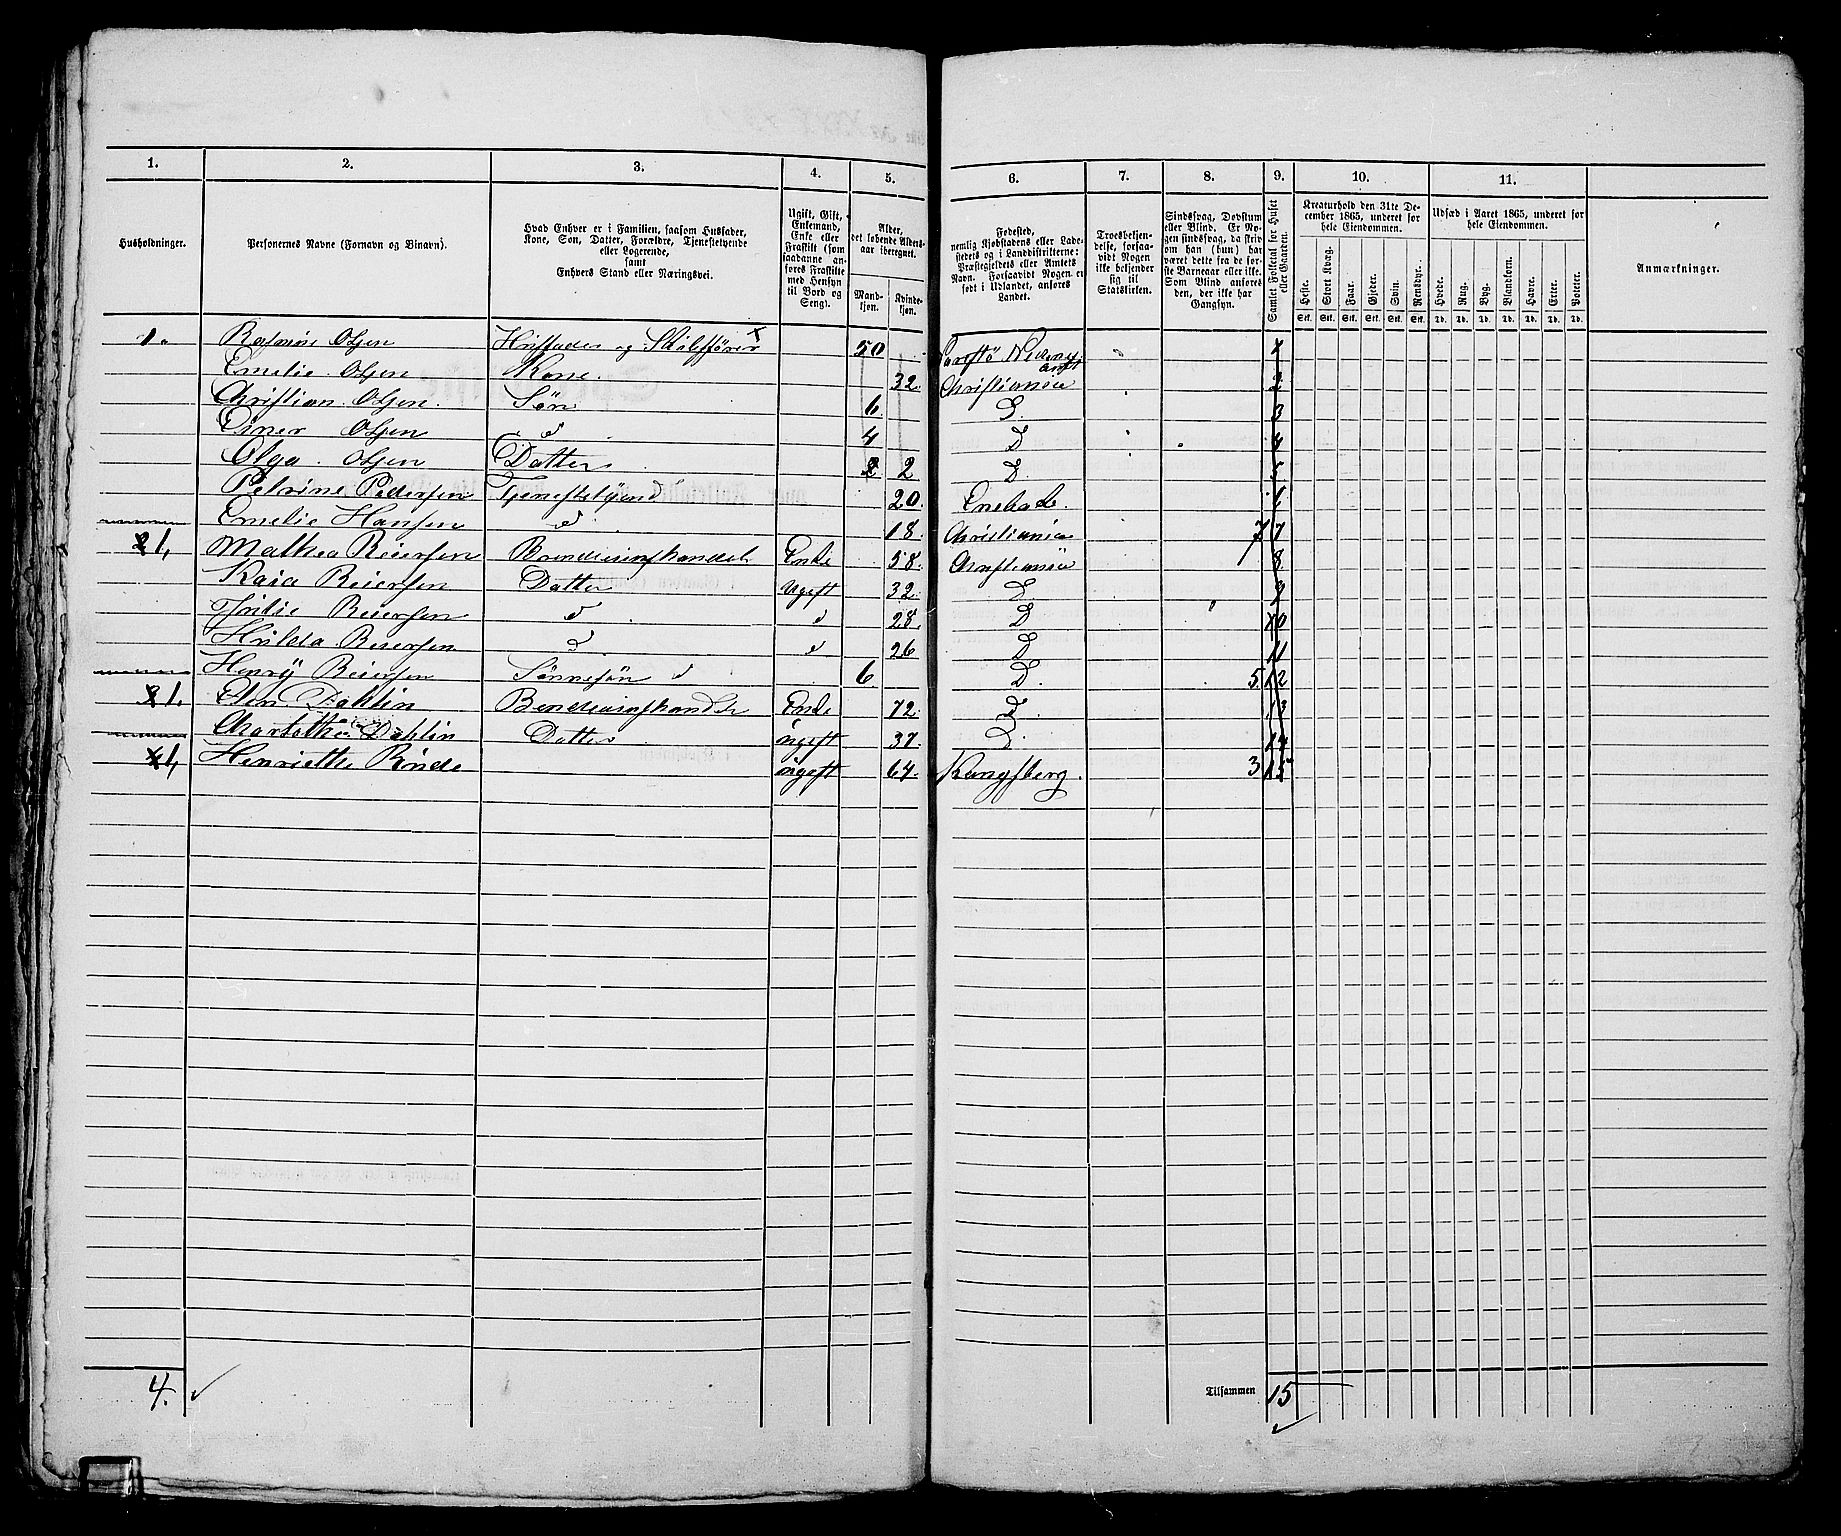 1. 2. 3. 4. 5. 6. 7. 8. 9. 10. 11.
Husholdninger.
Personernes Navne (Fornavn og Binavn).
Hvad Enhver er i Familien, saasom Husfader, Kone, Søn, Datter, Forældre, Tjenestetyende eller Logerende, samt Enhvers Stand eller Næringsvei.
Ugift, Gift, Enkemand, Enke eller Fraskilt (som saadanne anføres Fraskilte med Hensyn til Bord og Seng).
Alder, det løbende Aldersaar iberegnet.
Mandkjøn. Kvindekjøn.
Fødested, nemlig Kjøbstadens eller Ladestedets og i Landdistrikterne: Præstegjeldets eller Amtets Navn. Forsaavidt Nogen er født i Udlandet, anføres Landet.
Troesbekjendelse, forsaavidt Nogen ikke bekjender sig til Statskirken.
Sindssvag, Døvstum eller Blind. Er Nogen sindssvag, da skrives om han (hun) har været dette fra de første Barneaar eller ikke. Som Blind anføres den, der ikke har Gangsyn.
Samlet Folketal for Huset eller Gaarden.
Kreaturhold den 31te December 1865, underet for hele Eiendommen.
Heste. Stort Kvæg. Faar. Gjeder. Svin. Rensdyr.
Stk. Stk. Stk. Stk. Stk. Stk.
Udsæd i Aaret 1865, underet for hele Eiendommen.
Hvede. Rug. Byg. Blandkorn. Havre. Erter. Poteter.
Td. Td. Td. Td. Td. Td. Td.
Anmærkninger.
1. Olsen Husfader og 50
Emelie Olsen Kone. 32. Christiania 2
Christian Olsen. Søn 6 D. 3
Einer Olsen d 4 D 4
Olga Olsen Datter 2 D. 5
Petrine Pedersen Tjenestetyend 20.
Emelie Hansen d 18. Christiania 7 7
1, Mathea Reiersen Enke 58. Christiania 8
Kaia Reiersen Datter Ugift 32. D 9
Reiersen d d 28. D 10
Hilda Reiersen d d 26 D 11
Henry Reiersen Sønnesøn 6 D. 5. 12
1. Elen Dahlin Enke 72. D. 13
Dahlin Datter ugift 37. D. 14
1, Henriette ugift 64. Kongsberg. 3 15
4.
Tilsammen 15